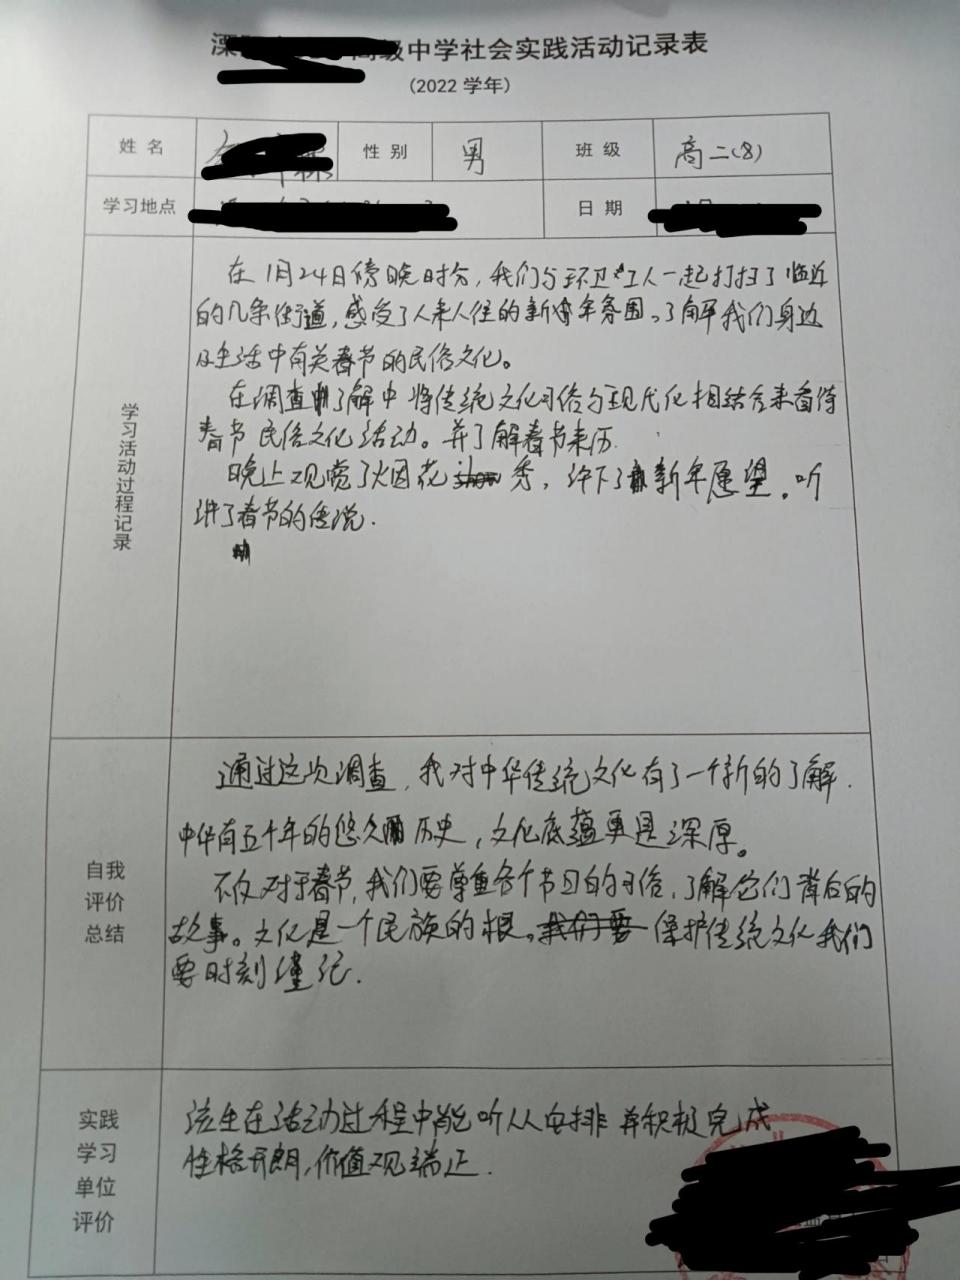 高级中学社会实践活动记录表
(2022 学年)
姓 名 性 别 男 班 级 高二(8)
学习地点 日 期
学习活动过程记录
在1月24日傍晚时分，我们与环卫工人一起打扫了临近
的几条街道，感受了人来人往的新年氛围。了解我们身边
及生活中有关春节的民俗文化。
在调查了解中将传统文化习俗与现代化相结合来看待
春节民俗文化活动。并了解春节来历.
晚上观赏了烟花秀，许下了新年愿望。听
讲了春节的传说.
自我
评价
总结
通过这次调查，我对中华传统文化有了一个新的了解.
中华有五千年的悠久历史，文化底蕴更是深厚。
不仅对于春节，我们要尊重各个节日的习俗，了解它们背后的
故事。文化是一个民族的根。我们要 保护传统文化我们
要时刻谨记.
实践
学习
单位
评价
该生在活动过程中能听从安排 并积极完成
性格开朗，价值观端正.